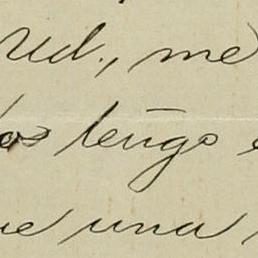 Ud., me
os tengo
ue una